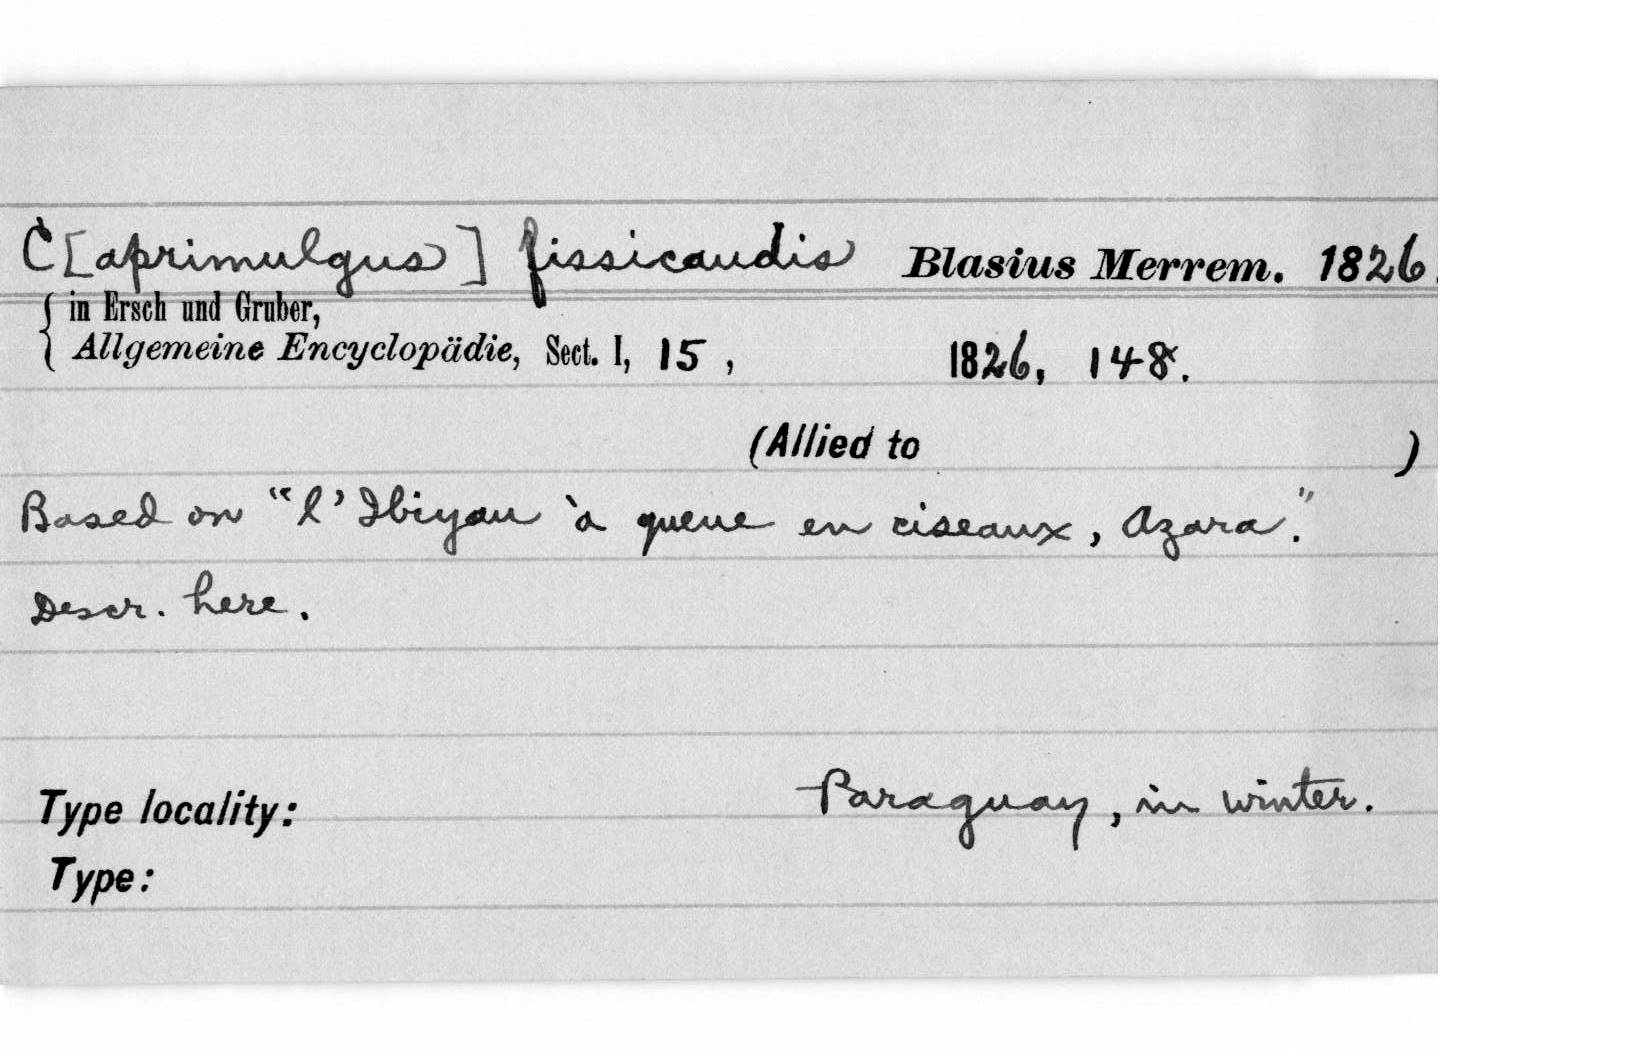 C[aprimulgus] fissicaudis Blasius Merrem. 1826.
in Ersch und Gruber,
Allgemeine Encyclopädie, Sect. I, 15, 1826, 148.
(Allied to )
Based on "l'Ibiyau à queue en ciseaux, Azara."
Descr. here.
Type locality: Paraguay, in winter.
Type: